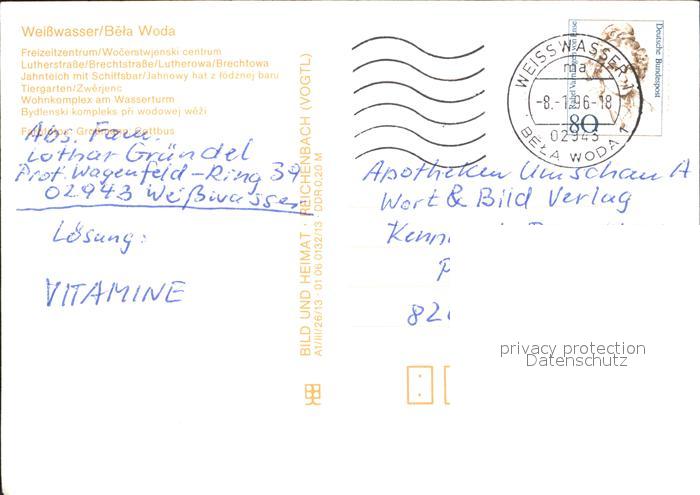 Weißwasser/Běła Woda
Freizeitzentrum/Wočerstwjenski centrum
Lutherstraße/Brechtstraße/Lutherowa/Brechtowa
Jahnteich mit Schiffsbar/Jahnowy hat z łódźnej baru
Tiergarten/Zwěrjenc
Wohnkomplex am Wasserturm
Bydlenski kompleks při wodowej wěži
Großmann, Cottbus
Abs. Fam.
Lothar Gründel
Prof. Wagenfeld-Ring 39
02943 Weißwasser
Lösung:
VITAMINE
BILD UND HEIMAT · REICHENBACH (VOGTL)
A1/III/26/13 · 01 06 0132/13 · DDR 0,20 M
WEISSWASSER 1
ma
-8.-1.96-18
02943
BĚŁA WODA 1
Deutsche Bundespost
80
Apotheken Umschau A
Wort & Bild Verlag
82
privacy protection
Datenschutz